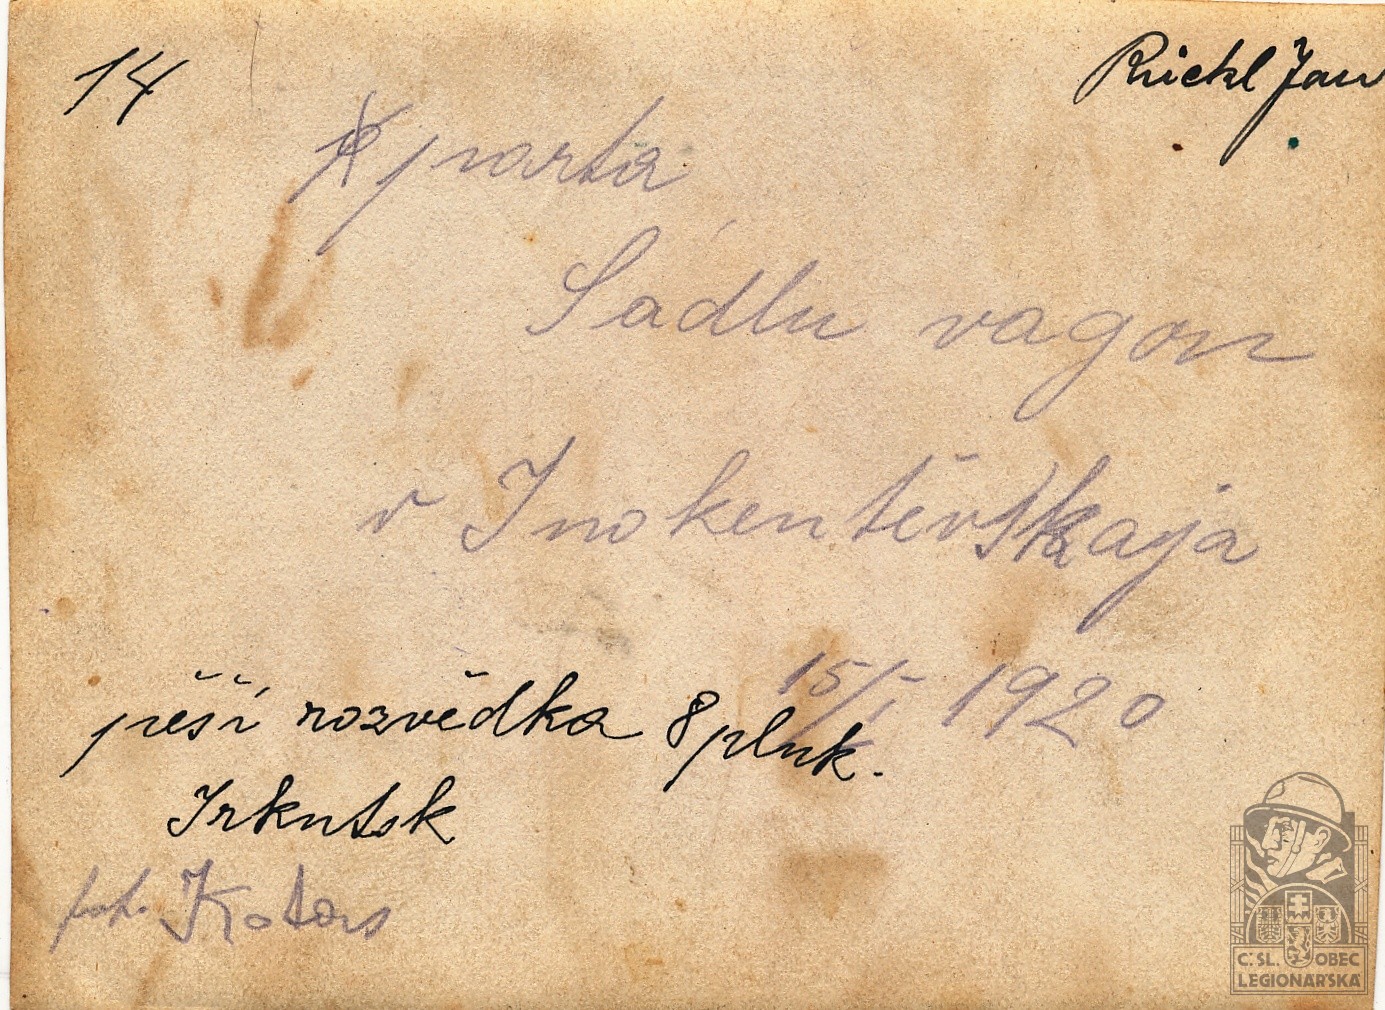 14
Rückl Jan
parta
Sádlu vagon
v Inokentěvskaja
15/I 1920
pěší rozvědka 8 pluk.
Irkutsk
fot. Kotas
Č.SL. OBEC
LEGIONÁŘSKÁ